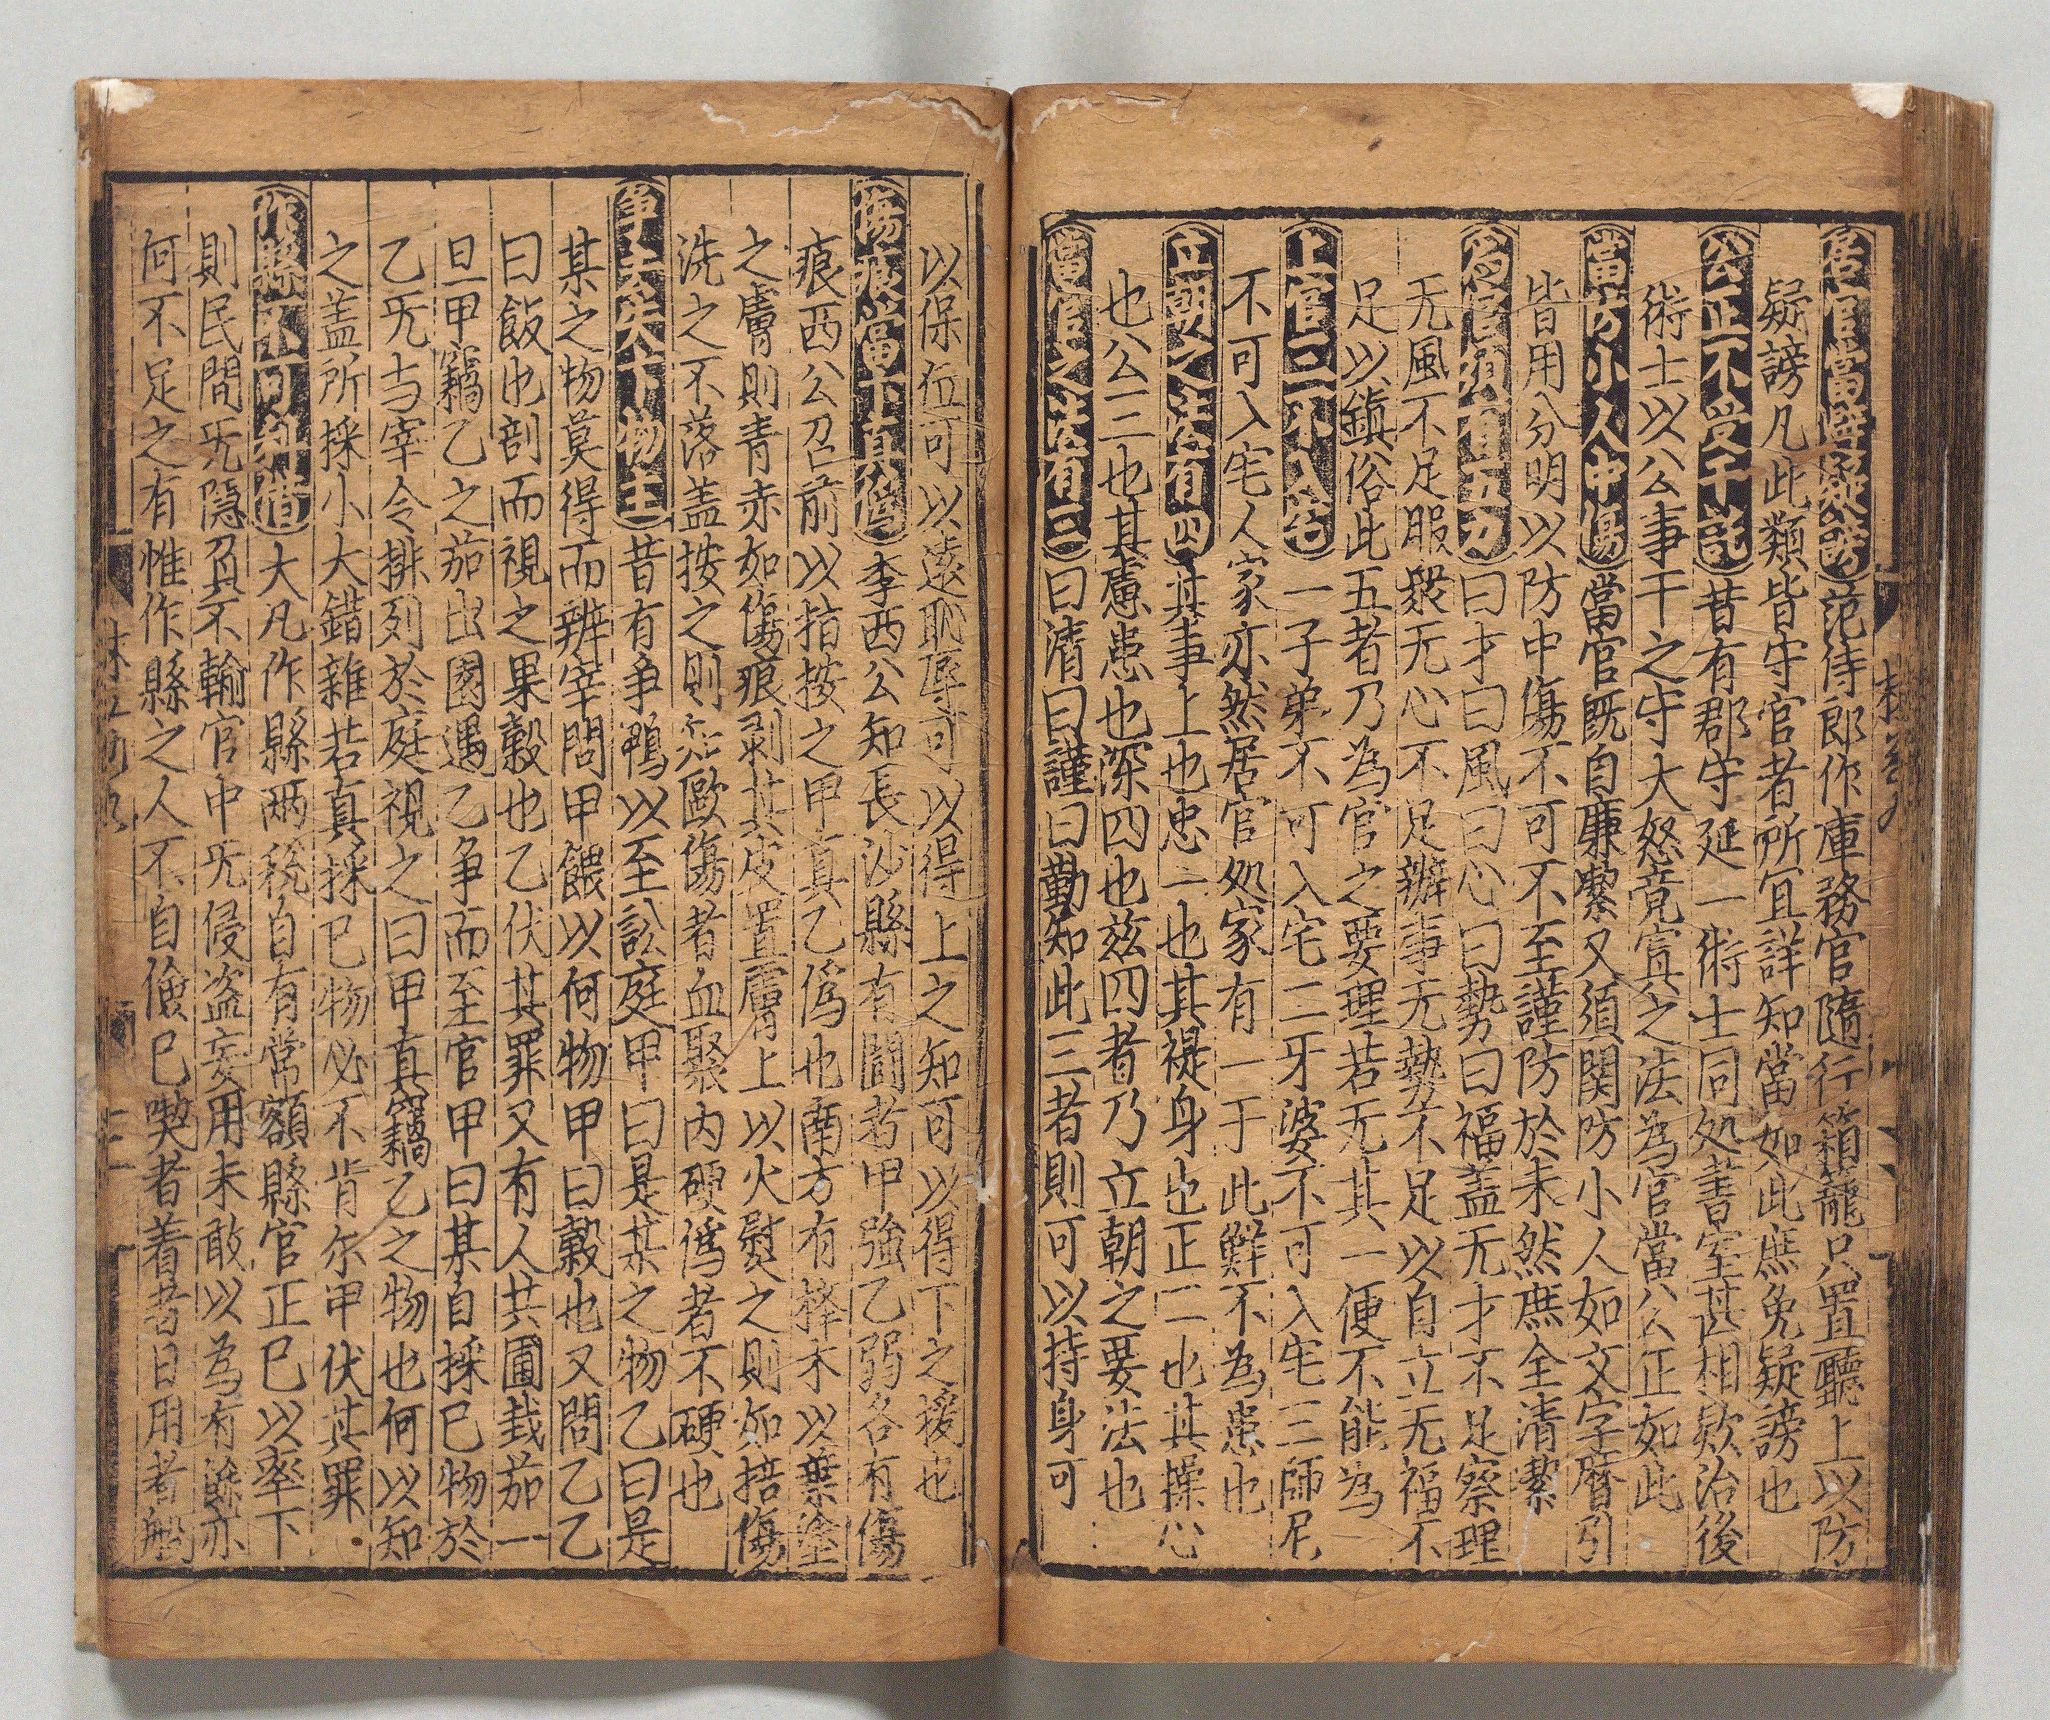 居官當避疑謗范侍郎作庫務官隨行箱籠只置聽上以防
疑謗凡此類皆守官者所宜詳知當如此庶免疑謗也
公正不受干託昔有郡守延一術士同処書室甚相欵洽後
術士以公事干之守大怒竟寘之法為官當公正如此
當防小人中傷當官既自廉潔又須関防小人如文字曆引
皆用分明以防中傷不可不至謹防於未然庶全清潔
為官須有五力曰才曰風曰心曰勢曰福盖无才不足察理
无風不足服衆无心不足辦事无勢不足以自立无福不
足以鎮俗此五者乃為官之要理若无其一便不能為
上官三不入宅一子弟不可入宅二牙婆不可入宅三師尼
不可入宅人家亦然居官処家有一于此鮮不為患也
立朝之法有四其事上也忠一也其禔身也正二也其操心
也公三也其慮患也深四也兹四者乃立朝之要法也
當官之法有三曰清曰謹曰勤知此三者則可以持身可
以保位可以逺恥辱可以得上之知可以得下之援也
傷痕當下真僞李西公知長沙縣有闘者甲強乙弱各有傷
痕西公召前以指按之甲真乙僞也南方有擇木以葉塗
之膚則青赤如傷痕剥其皮置膚上以火熨之則如掊傷
洗之不落盖按之則 歐傷者血聚内硬僞者不硬也
爭 下物主昔有爭鴨以至訟庭甲曰是某之物乙曰是
某之物莫得而辨宰問甲餵以何物甲曰穀也又問乙乙
曰飯也剖而視之果穀也乙伏其罪又有人共圃栽茄一
旦甲竊乙之茄出園遇乙爭而至官甲曰某自採已物於
乙旡与宰令排列於庭視之曰甲真竊乙之物也何以知
之盖所採小大錯雜若真採已物必不肯尔甲伏其罪
作縣 大凡作縣兩税自有常額縣官正已以率下
則民間旡隠 不輸官中旡侵盗妄用未敢以為有餘亦
何不足之有惟作縣之人不自儉已喫者着者日用者般